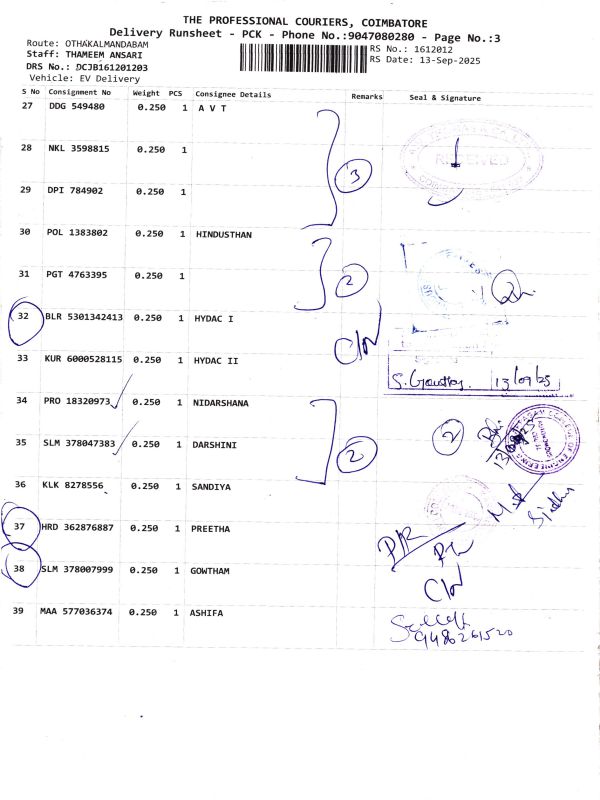 THE PROFESSIONAL COURIERS, COIMBATORE
Delivery Runsheet - PCK - Phone No.:9047080280 - Page No.:3
Route: OTHAKALMANDABAM
Staff: THAMEEM ANSARI
DRS No.: DCJB161201203
Vehicle: EV Delivery
RS No.: 1612012
RS Date: 13-Sep-2025
S No Consignment No Weight PCS Consignee Details Remarks Seal & Signature
27 DDG 549480 0.250 1 A V T
28 NKL 3598815 0.250 1
RECEIVED
3
29 DPI 784902 0.250 1
30 POL 1383802 0.250 1 HINDUSTHAN
31 PGT 4763395 0.250 1
2
32 BLR 5301342413 0.250 1 HYDAC I
33 KUR 6000528115 0.250 1 HYDAC II
13/09/25
34 PRO 18320973 0.250 1 NIDARSHANA
35 SLM 378047383 0.250 1 DARSHINI
2
2
36 KLK 8278556 0.250 1 SANDIYA
37 HRD 362876887 0.250 1 PREETHA
38 SLM 378007999 0.250 1 GOWTHAM
39 MAA 577036374 0.250 1 ASHIFA
9486261520